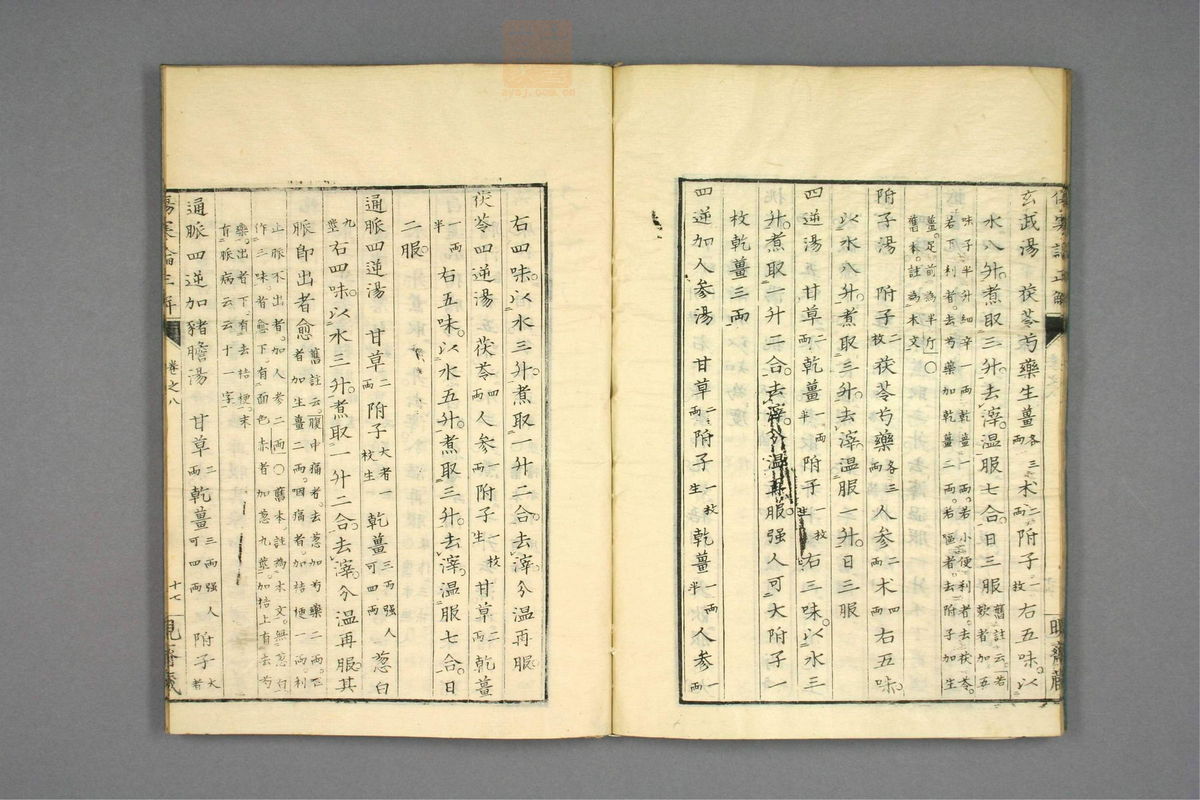 玄武湯 茯苓芍藥生薑各三兩 朮二兩 附子一枚 右五味以
水八升煮取三升去滓温服七合日三服 舊註云若欬者加五
味子半升細辛一兩乾薑一兩若小便利者去茯苓
若下利者去芍藥加乾薑二兩若嘔者去附子加生
薑足前為半斤〇
舊本註為本文
附子湯 附子二枚 茯苓芍藥各三兩 人参二兩 朮四兩 右五味
以水八升煮取三升去滓温服一升日三服
四逆湯 甘草二兩 乾薑一兩半 附子一枚生 右三味以水三
升煮取一升二合去滓分温再服强人可大附子一
枚乾薑三兩
四逆加人参湯 甘草二兩 附子一枚生 乾薑一兩半 人参一兩
右四味以水三升煮取一升二合去滓分温再服
茯苓四逆湯 茯苓四兩 人参一兩 附子一枚生 甘草二兩 乾薑
一兩半 右五味以水五升煮取三升去滓温服七合日
二服
通脈四逆湯 甘草二兩 附子大者一枚生 乾薑三兩强人可四兩 葱白
九莖 右四味以水三升煮取一升二合去滓分温再服其
脈即出者愈 舊註云腹中痛者去葱加芍藥二兩
者加生薑二兩咽痛者加桔梗一兩利
止脈不出者加人参二兩〇舊本註為本文無葱白
作三味者愈下有面色赤者加葱九莖加桔上有去芍
藥出者下有去桔梗末
有脈病云云十一字
通脈四逆加豬膽湯 甘草二兩 乾薑三兩强人可四兩 附子大者
傷寒論正解
卷之八
十七